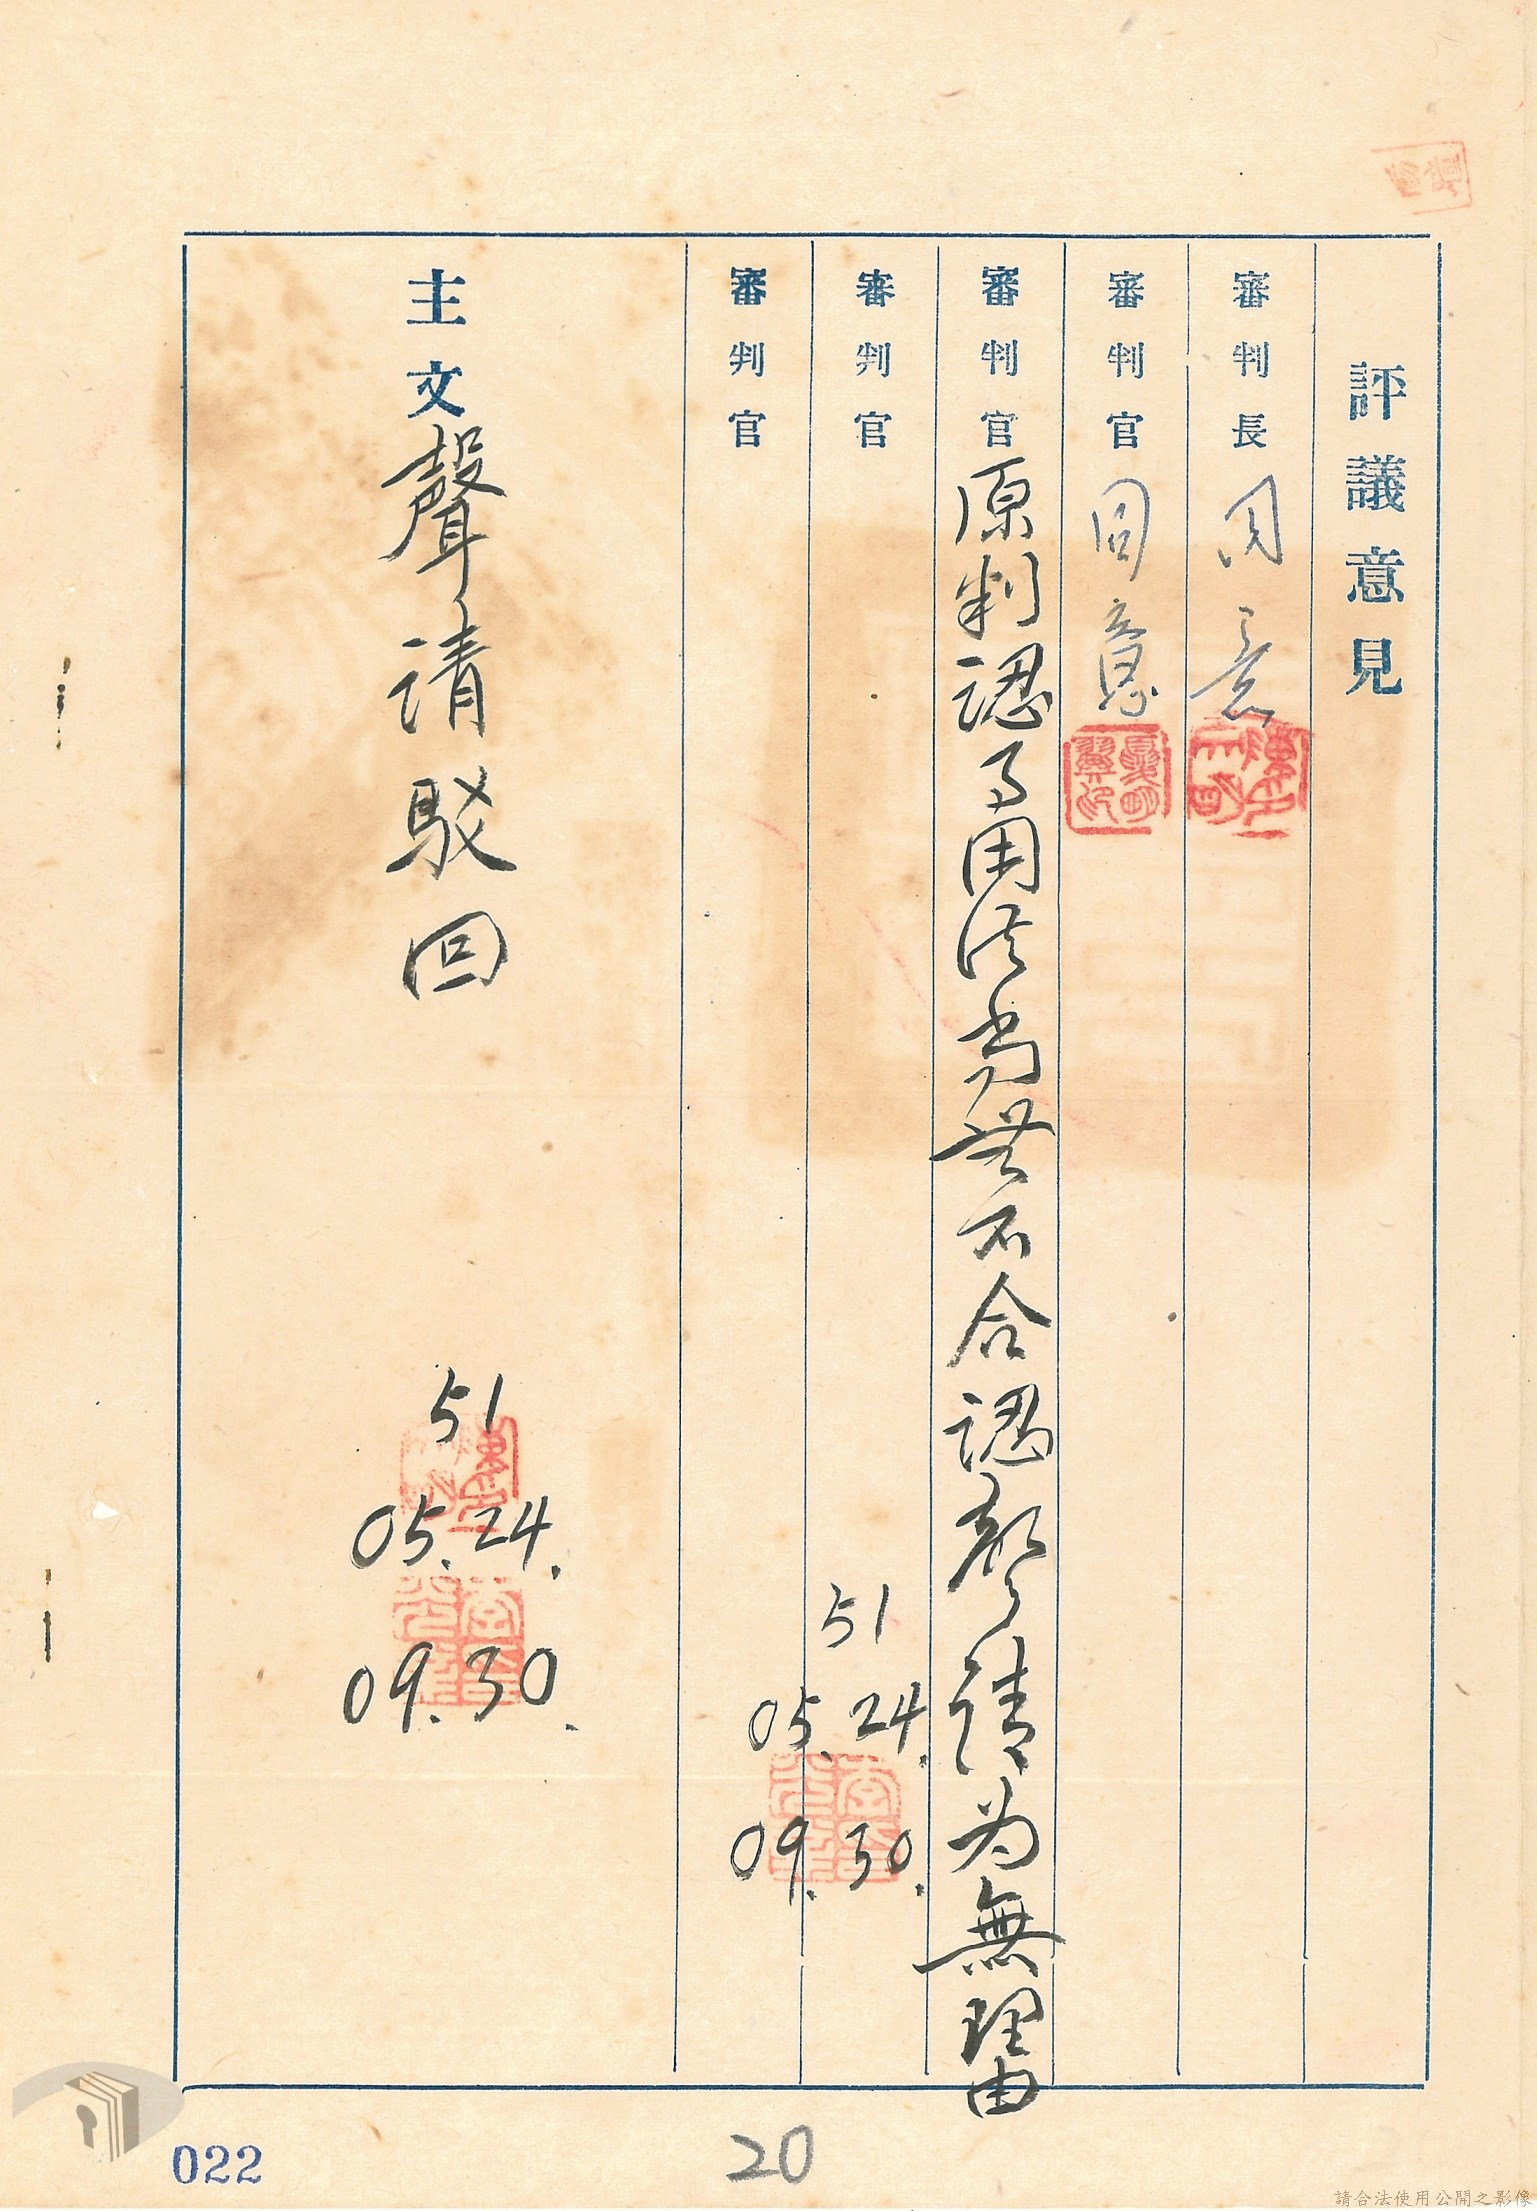 評議意見
審判長 同意
審判官 同意
審判官 原判認事用法尚無不合認聲請为無理由
審判官
審判官
51
05.24.
09.30.
主文 聲請駁回
51
05.24.
09.30.
022
20
請合法使用公開之影像